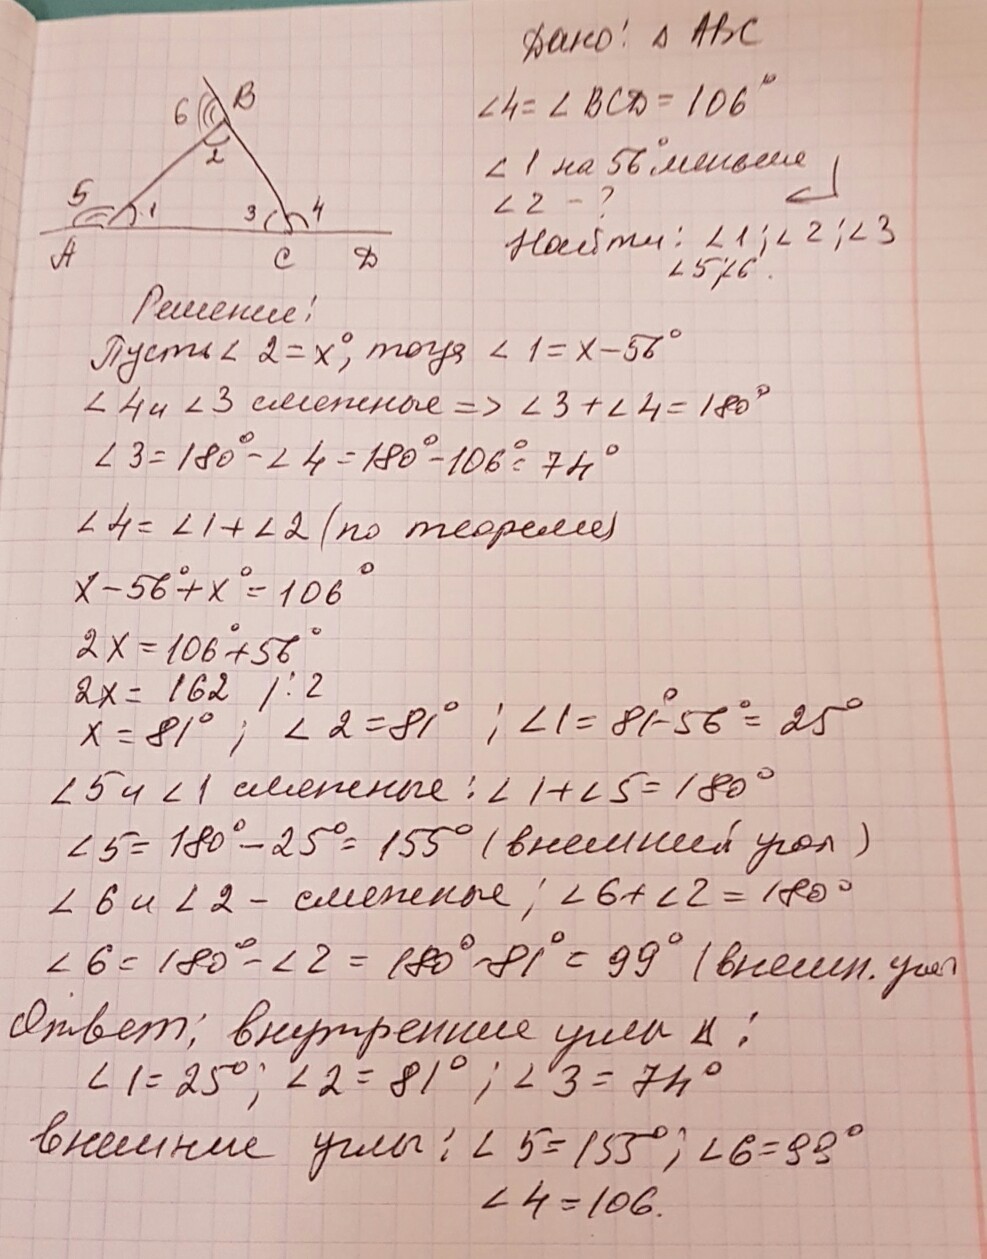 Дано: △ ABC
∠4 = ∠ BCD = 106°
∠ 1 на 56° меньше
∠ 2 - ?
Найти: ∠1; ∠2; ∠3
∠5; 6.
6 B
2
5 1 3 4
A C D
Решение:
Пусть ∠ 2 = x°, тогда ∠ 1 = x - 56°
∠ 4 и ∠3 смежные => ∠3 + ∠4 = 180°
∠ 3 = 180° - ∠ 4 = 180° - 106° = 74°
∠4 = ∠1 + ∠2 (по теореме)
x - 56° + x° = 106°
2x = 106° + 56°
2x = 162 / : 2
x = 81° ; ∠ 2 = 81° ; ∠1 = 81° - 56° = 25°
∠5 и ∠1 смежные : ∠1 + ∠5 = 180°
∠5 = 180° - 25° = 155° (внешний угол)
∠ 6 и ∠ 2 - смежные ; ∠6 + ∠2 = 180°
∠6 = 180° - ∠2 = 180° - 81° = 99° (внешн. угол
Ответ: внутренние углы △ :
∠1 = 25° ; ∠2 = 81° ; ∠ 3 = 74°
внешние углы : ∠ 5 = 155° ; ∠6 = 99°
∠4 = 106.